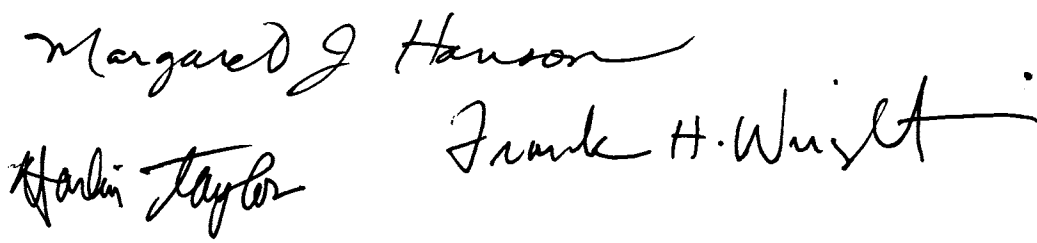 Margaret J Hanson
Frank H. Wright
Harlin Taylor